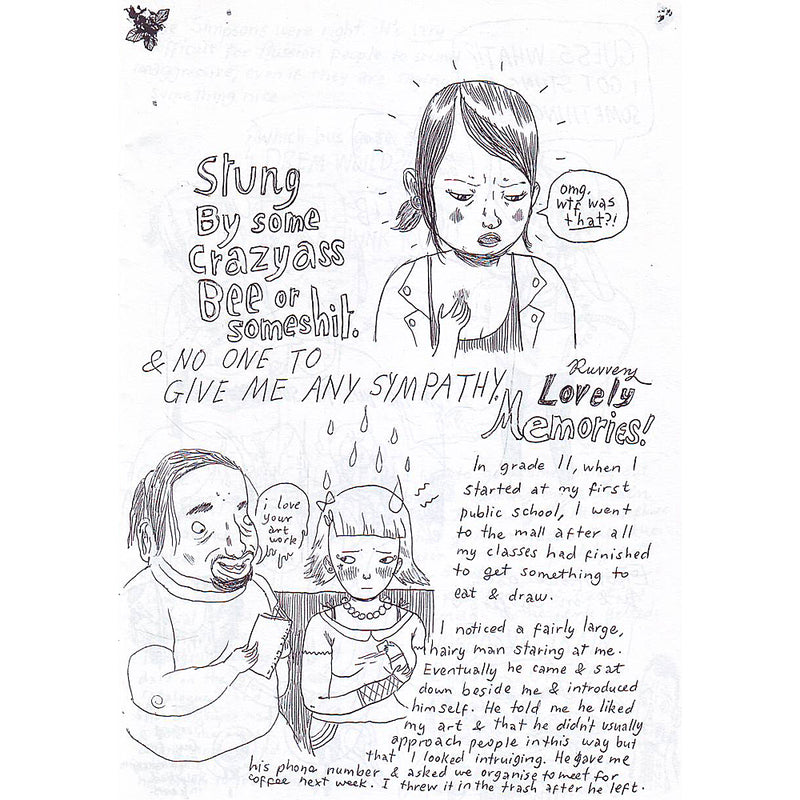 Stung
By some
Crazyass
Bee or
someshit.
omg,
wtf was
that?!
& NO ONE TO
GIVE ME ANY SYMPATHY.
Lovely
Memories!
i love
your
art
work
In grade 11, when I
started at my first
public school, I went
to the mall after all
my classes had finished
to get something to
eat & draw.
I noticed a fairly large,
hairy man staring at me.
Eventually he came & sat
down beside me & introduced
himself. He told me he liked
my art & that he didn't usually
approach people in this way but
that I looked intruiging. He gave me
his phone number & asked we organise to meet for
coffee next week. I threw it in the trash after he left.